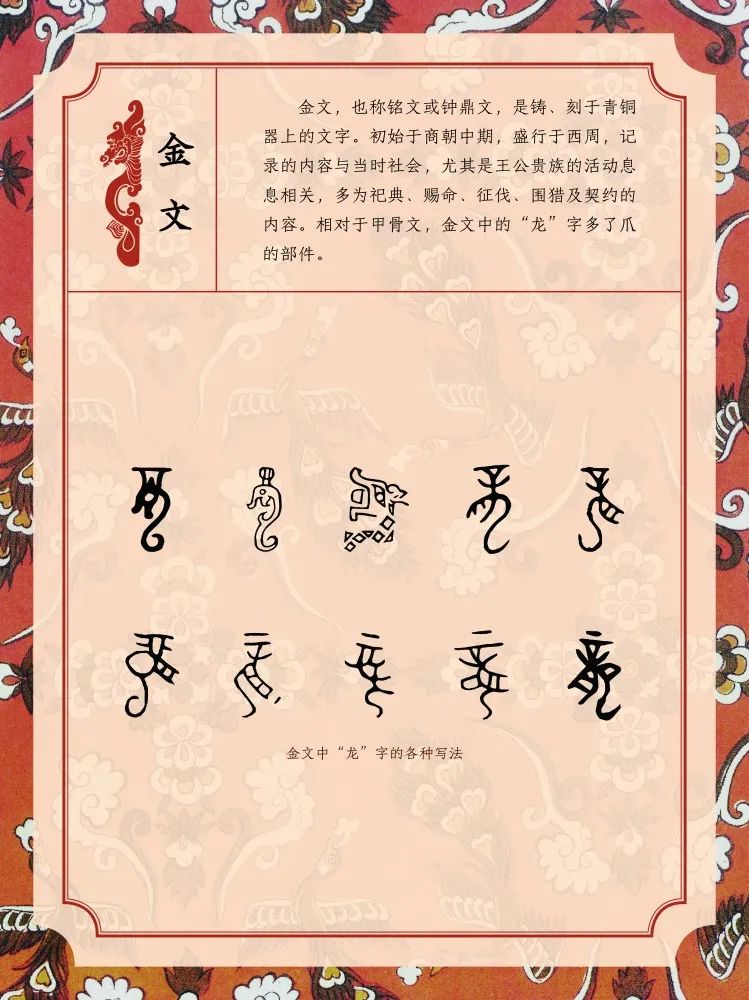 金文
金文，也称铭文或钟鼎文，是铸、刻于青铜
器上的文字。初始于商朝中期，盛行于西周，记
录的内容与当时社会，尤其是王公贵族的活动息
息相关，多为祀典、赐命、征伐、围猎及契约的
内容。相对于甲骨文，金文中的“龙”字多了爪
的部件。
金文中“龙”字的各种写法